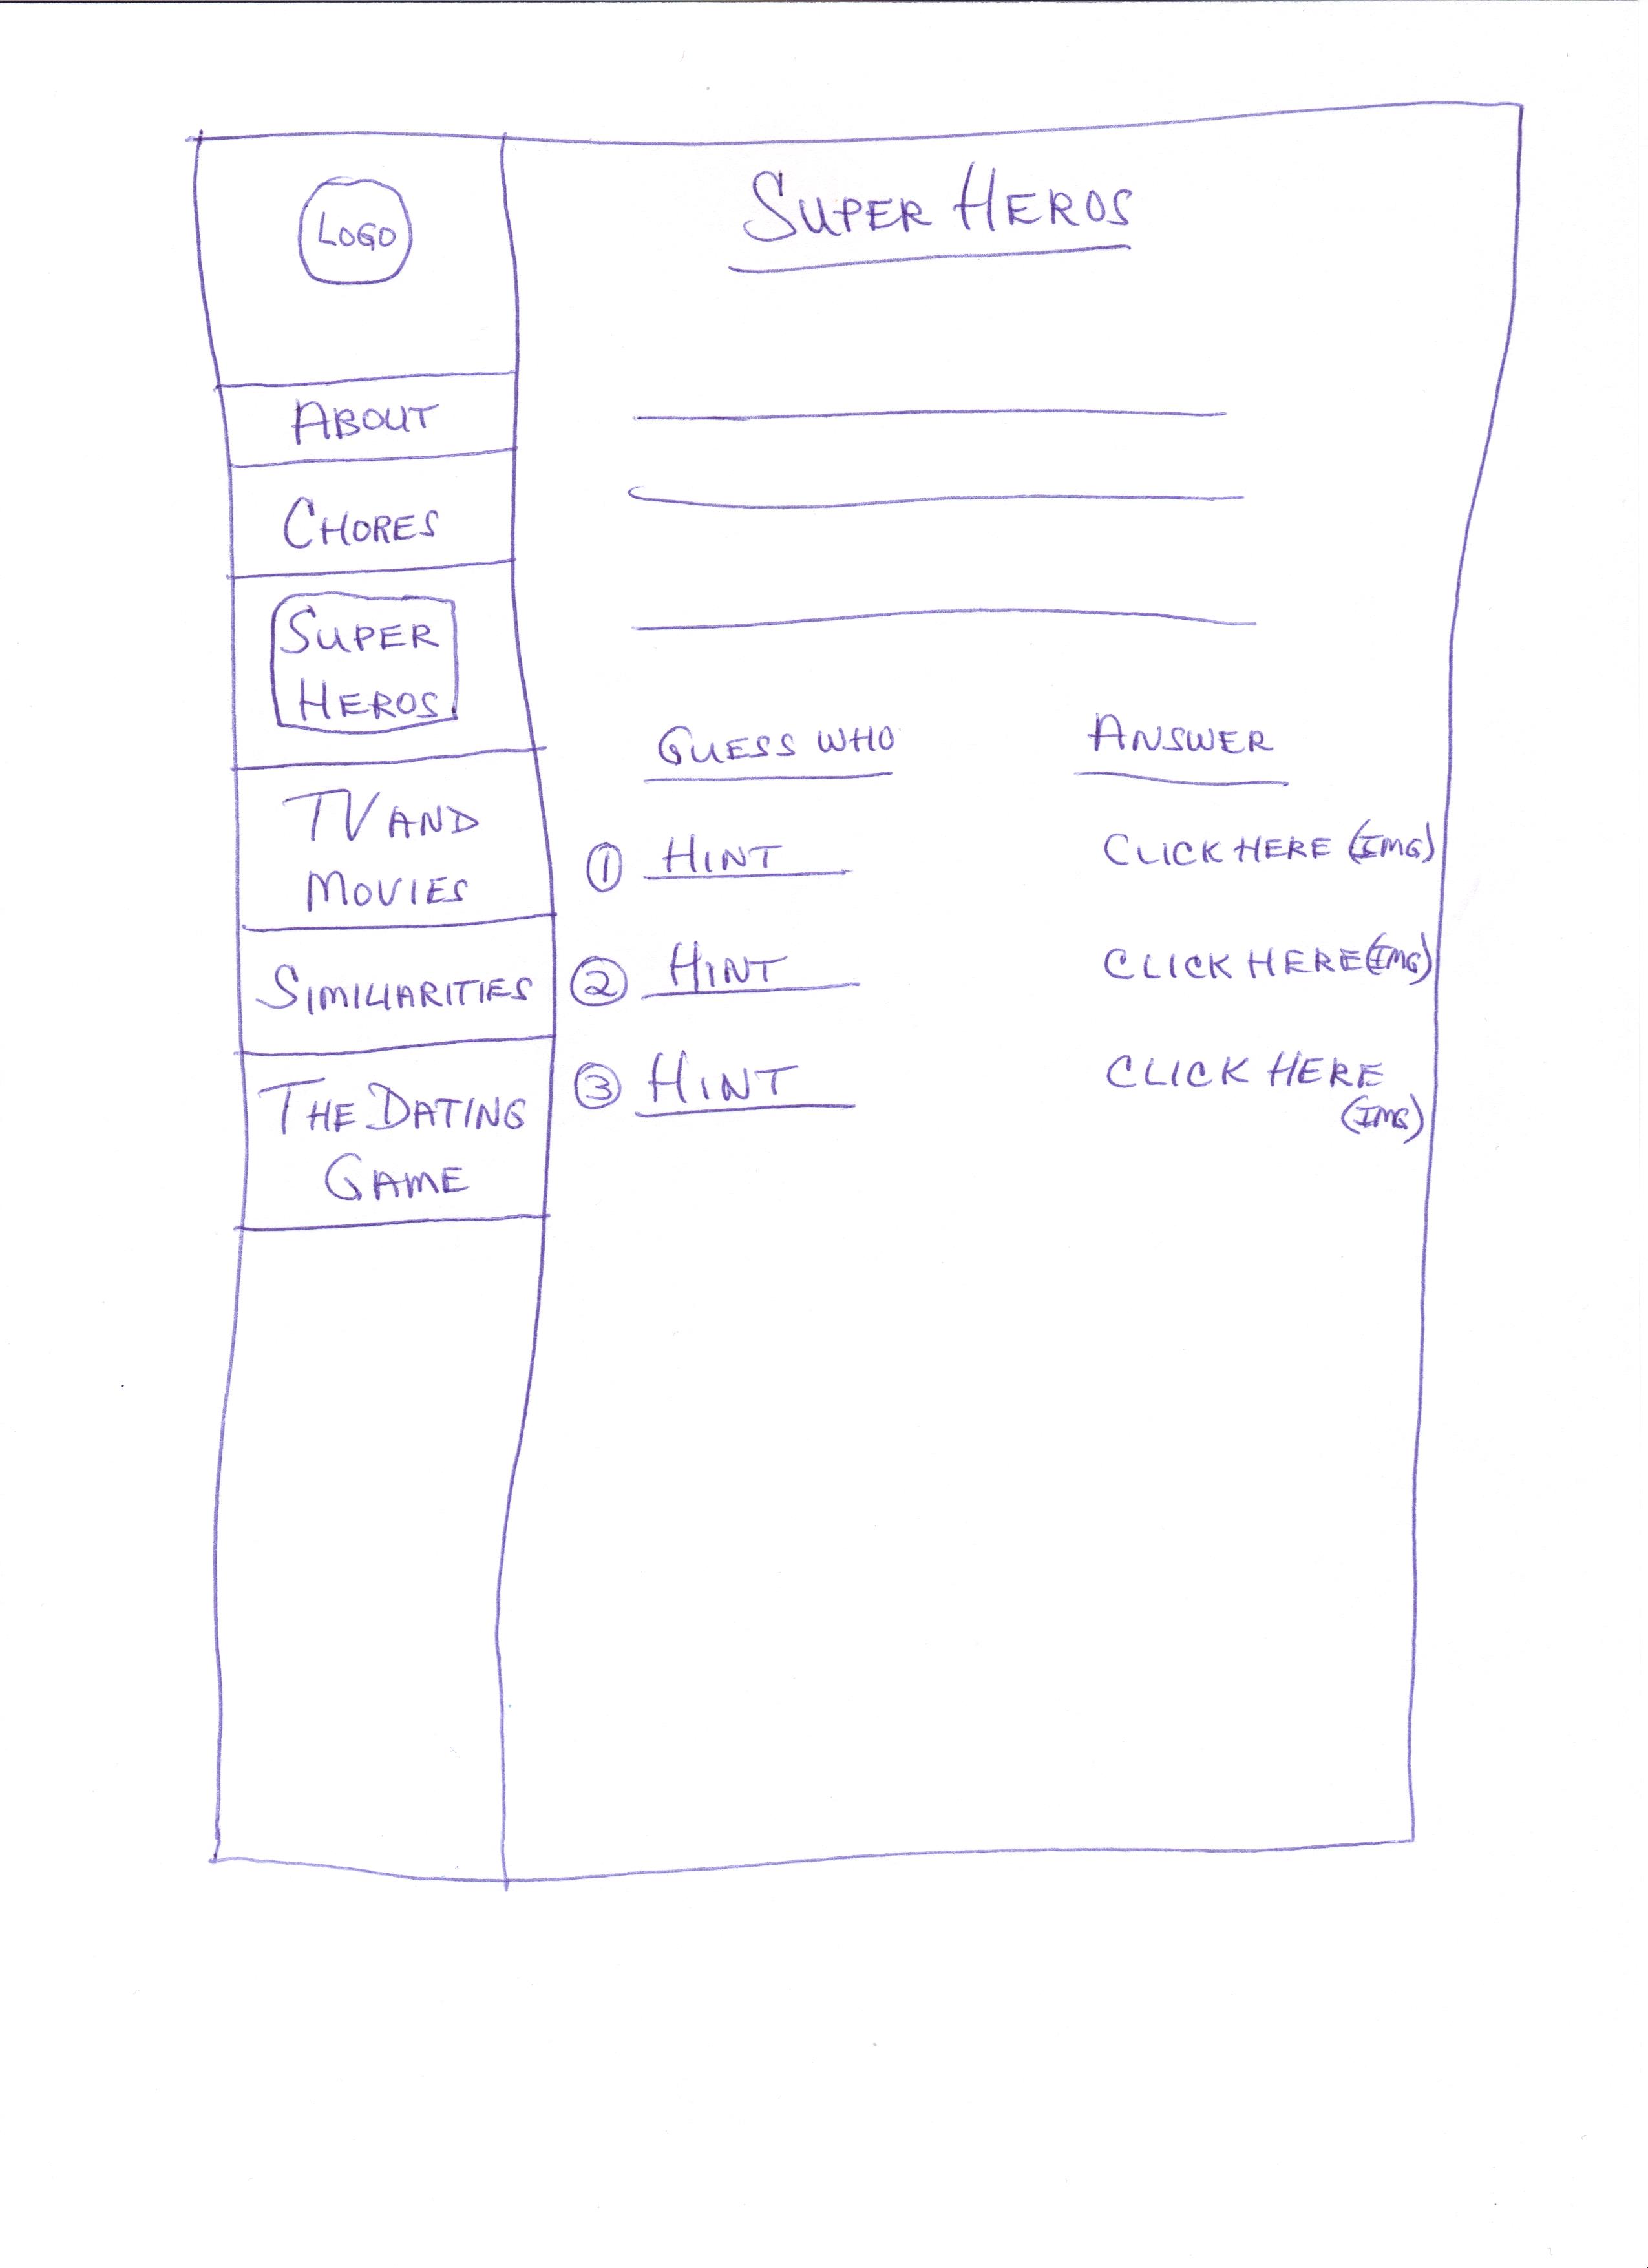 LOGO
ABOUT
CHORES
SUPER
HEROS
TV AND
MOVIES
SIMILIARITIES
THE DATING
GAME
SUPER HEROS
GUESS WHO ANSWER
1 HINT CLICK HERE (IMG)
2 HINT CLICK HERE (IMG)
3 HINT CLICK HERE
(IMG)